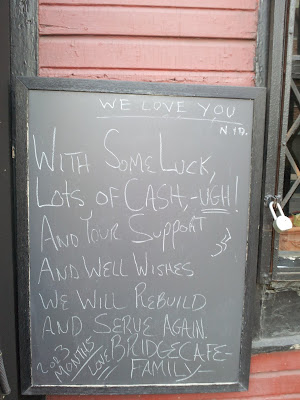 WE LOVE YOU
NYD.
WITH SOME LUCK,
LOTS OF CASH,-UGH!
AND YOUR SUPPORT
AND WELL WISHES
WE WILL REBUILD
AND SERVE AGAIN.
2 OR 3 MONTHS
LOVE BRIDGECAFE-
FAMILY-